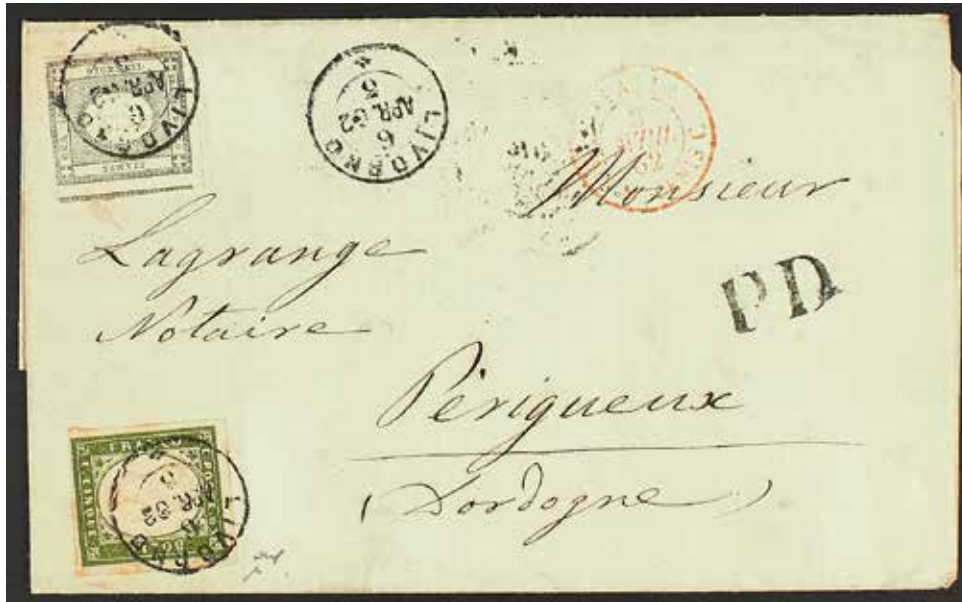 LIVORNO
6
APR. 62
3
LIVORNO
6
APR. 62
3
Monsieur
Lagrange
Notaire
PD
Périgueux
(Dordogne)
LIVORNO
6
APR. 62
3